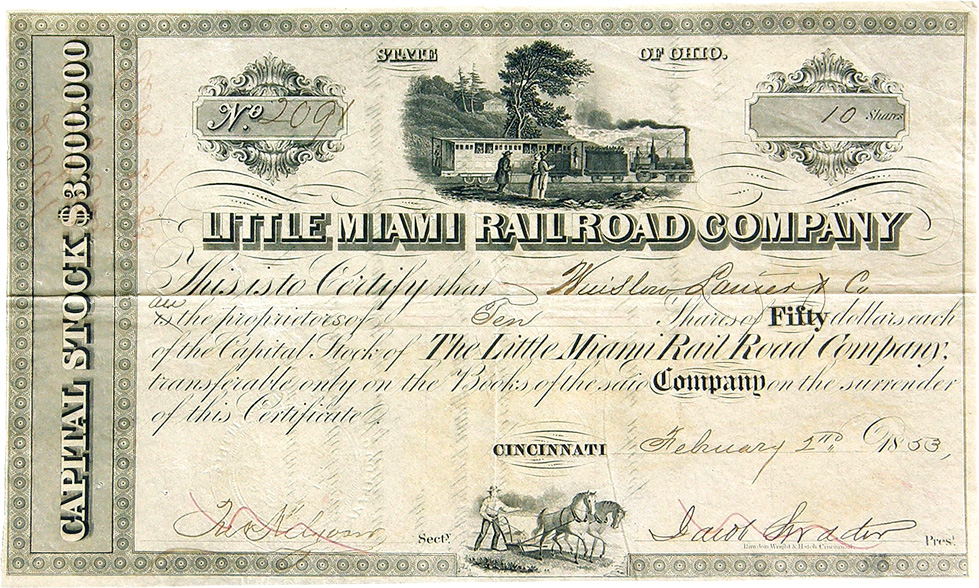 STATE OF OHIO.
No. 2091
10 Shares
CAPITAL STOCK $3.000.000
LITTLE MIAMI RAILROAD COMPANY
This is to Certify that Winslow Lanier & Co
are
is the proprietors of Ten Shares of Fifty dollars each
of the Capital Stock of The Little Miami Rail Road Company,
transferable only on the Books of the said Company on the surrender
of this Certificate.
CINCINNATI February 2nd 1853,
Secty.
Jacob Strader Prest.